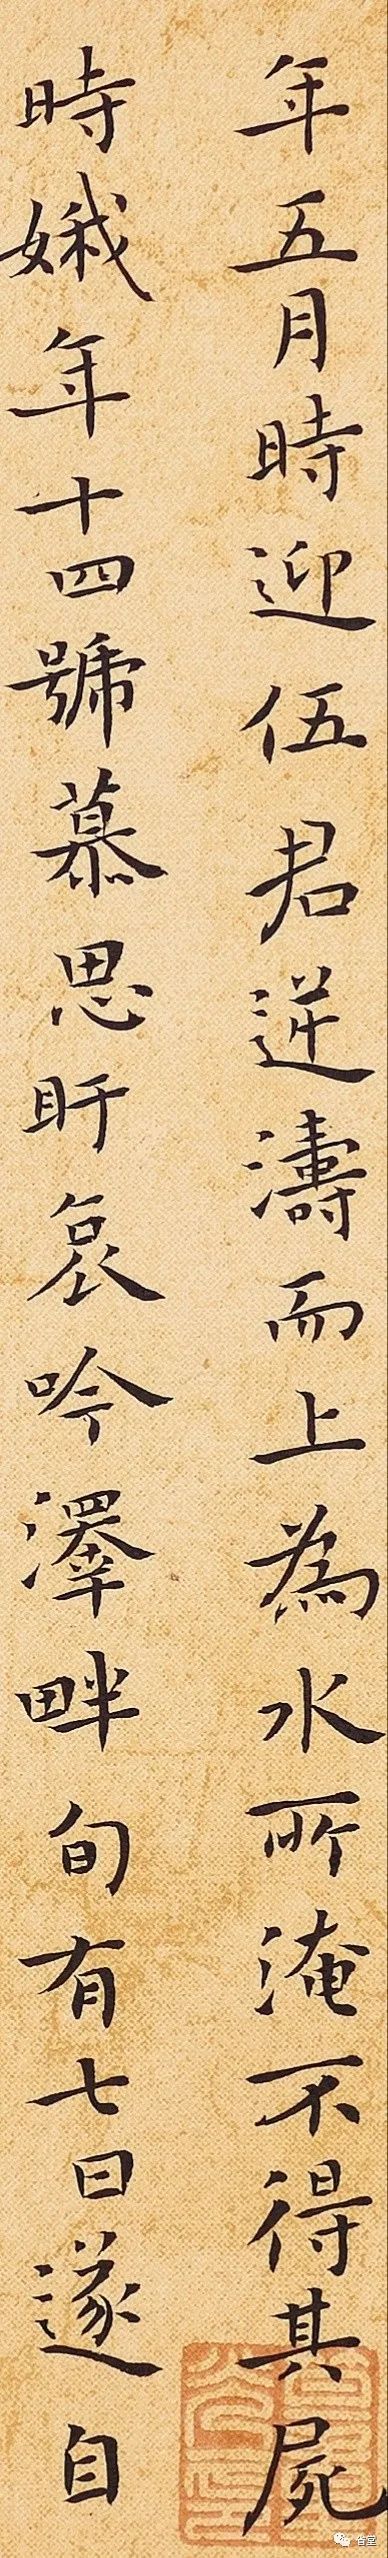 年五月時迎伍君逆濤而上為水所淹不得其屍
時娥年十四號慕思盱哀吟澤畔旬有七日遂自
台堂